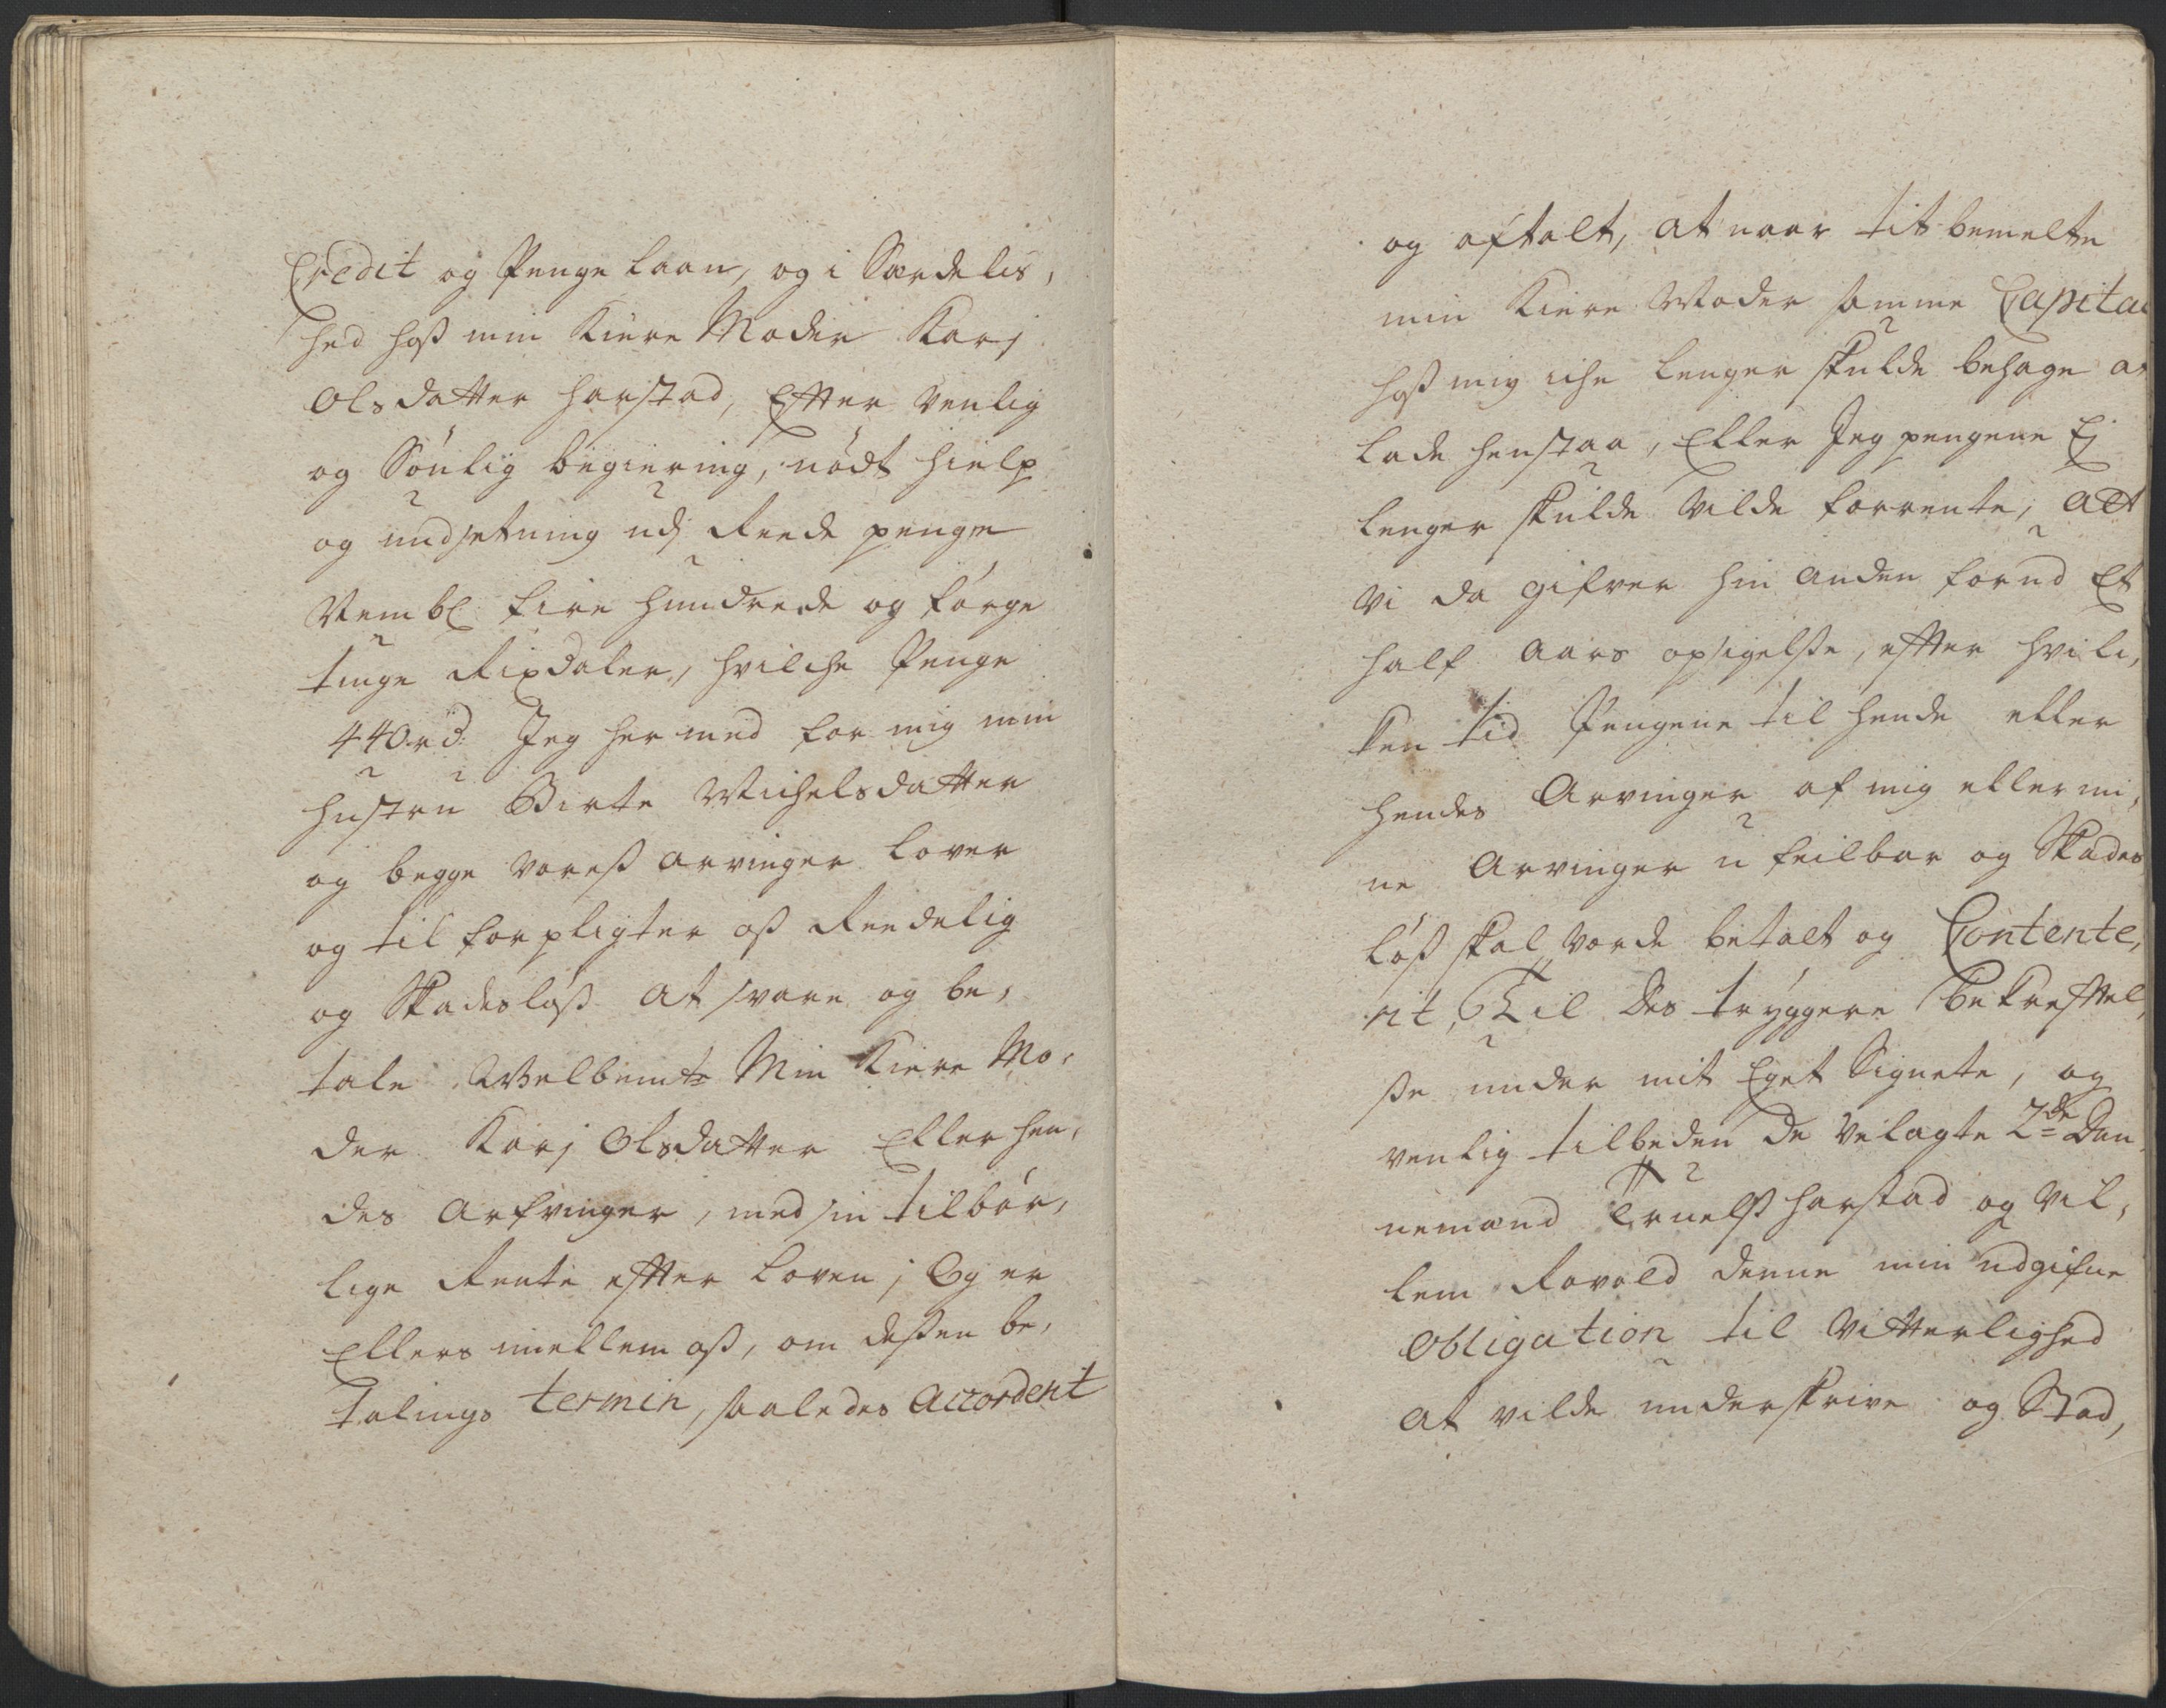 Credit og Penge laan, og i Særdelis,
hed hoß min Kiere Moder Karj
Olsdatter harstad, Efter venlig
og Sønlig begiering, nødt hielp
og undsetning udj Reede penge
Nembl: fire hundrede og førge
tiuge Rixdaler, hvilche Penge
440 rd: Jeg her med for mig min
hustru Birte Michelsdatter
og begge voreß arvinger lover
og til forpligter oß Reedelig
og Skadesløß at svare og be,
tale Velbemte Min Kiere Mo,
der Karj Olsdatter Eller hen,
des Arfvinger, med sin tilbør,
lige Rente efter loven; Og er
Ellers imellem oß, om deßen be,
talings termin, saaledes Accordert
og aftalt, at naar tit bemelte
min Kiere Moder samme Capital
hoß mig iche lenger skulde behage at
lade henstaa, Eller Jeg pengene Ej
lenger skulde vilde forrente, att
vi da gifver hin anden forud Et
half aars opsigelße, efter hvil,
ken tid Pengene til hende eller
hendes Arvinger af mig eller mi,
ne Arvinger u feilbar og Skades
løß skal vorde betalt og Contente,
rit, Til des tryggere bekreftel,
ße under mit Eget Signete, og
venlig tilbeden de velagte 2de Dan,
nemænd Truelß harstad og Vil,
lem Rovold denne min udgifne
Obligation til Vitterlighed
at vilde underskrive og Stad,